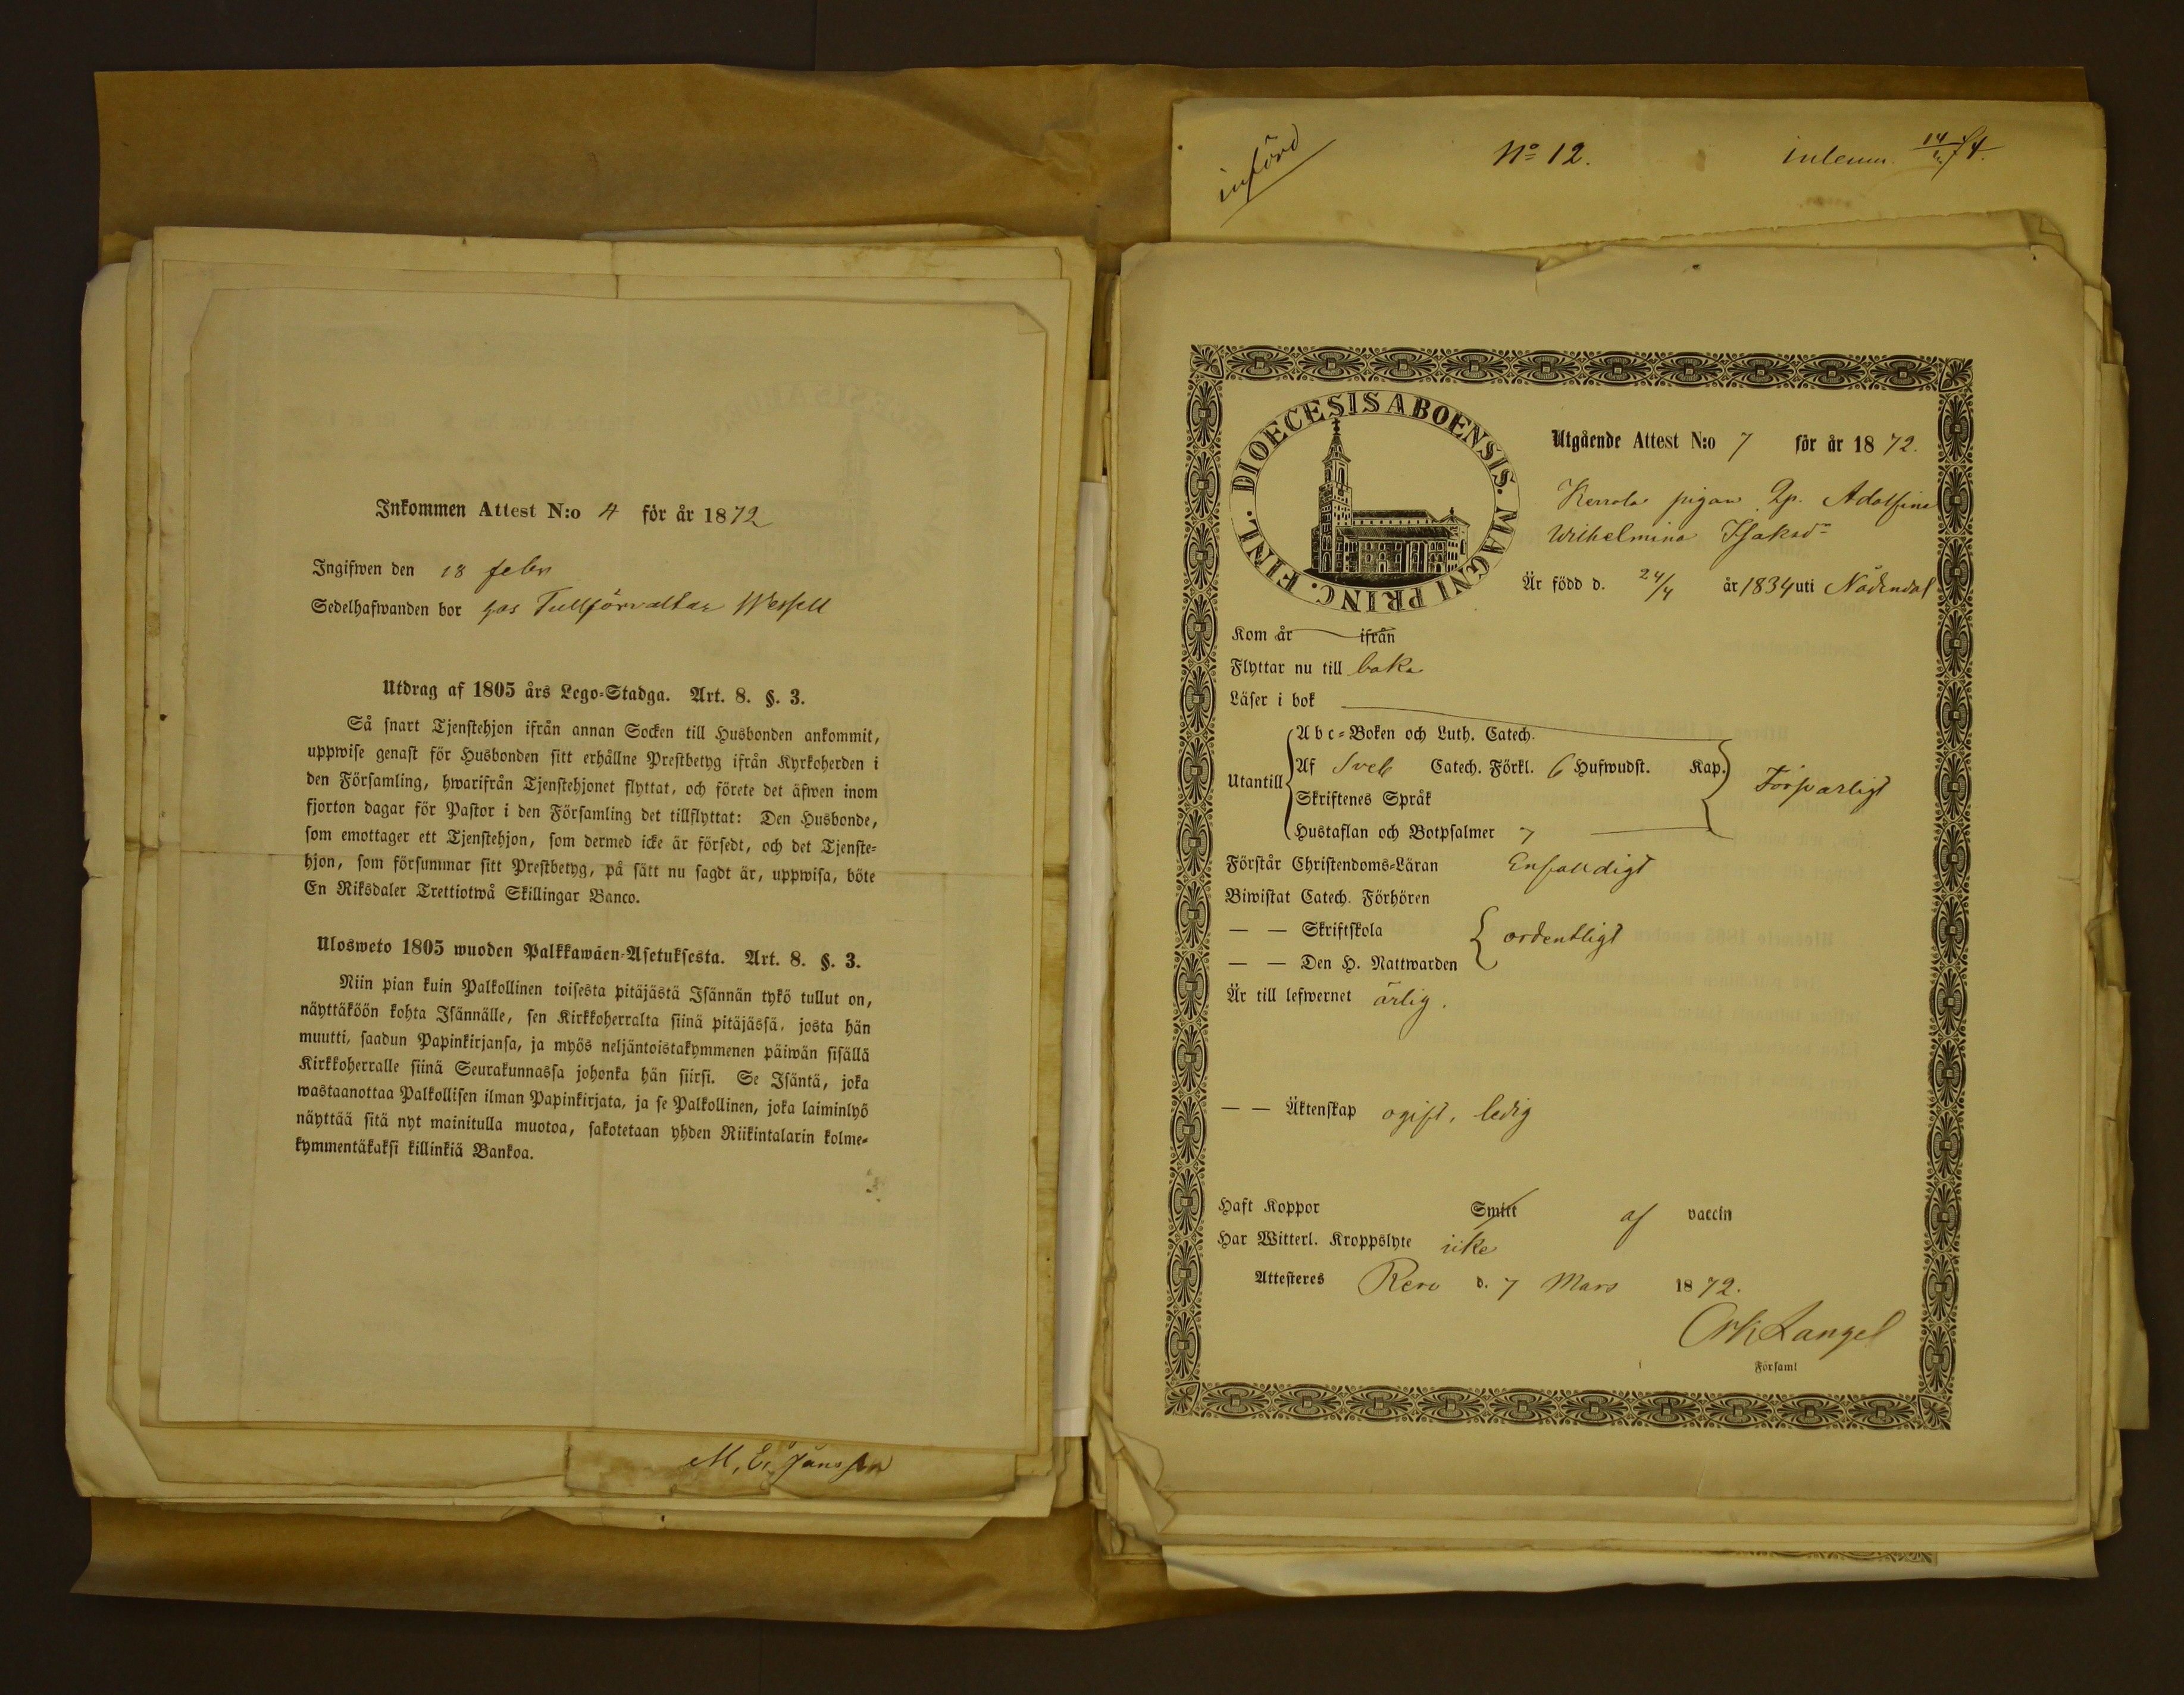 Inkommen Attest N:o 4 för år 1872
Ingifwen den 18 febr
Sedelhafwanden bor hos Tullförvaltar Wessell
Utdrag af 1805 års Lego-Stadga. Art. 8. §. 3.
Så snart Tjenstehjon ifrån annan Socken till Husbonden ankommit,
uppwise genast för Husbonden sitt erhållne Prestbetyg ifrån Kyrkoherden i
den Församling, hwarifrån Tjenstehjonet flyttat, och förete det äfwen inom
fjorton dagar för Pastor i den Församling det tillflyttat: Den Husbonde,
som emottager ett Tjenstehjon, som dermed icke är försedt, och det Tjenste-
hjon, som försummar sitt Prestbetyg, på sätt nu sagdt är, uppwisa, böte
En Riksdaler Trettiotwå Skillingar Banco.
Ulosweto 1805 wuoden Palkkawäen-Asetuksesta. Art. 8. §. 3.
Niin pian kuin Palkollinen toisesta pitäjästä Isännän tykö tullut on,
näyttäköön kohta Isännälle, sen Kirkkoherralta siinä pitäjässä, josta hän
muutti, saadun Papinkirjansa, ja myös neljäntoistakymmenen päiwän sisällä
Kirkkoherralle siinä Seurakunnassa johonka hän siirsi. Se Isäntä, joka
wastaanottaa Palkollisen ilman Papinkirjata, ja se Palkollinen, joka laiminlyö
näyttää sitä nyt mainitulla muotoa, sakotetaan yhden Riikintalarin kolme-
kymmentäkaksi killinkiä Bankoa.
M. E. Jansson
införd
No 12.
inlemn. 14/4 74.
DIOECESIS ABOENSIS. MAGNI PRINC. FINL.
Utgående Attest N:o 7 för år 1872.
Kerrola pigan Qp. Adolfina
Wilhelmina Isaksdr
Är född d. 24/4 år 1834 uti Nådendal
Kom år — ifrån
Flyttar nu till baka
Läser i bok
Abc-Boken och Luth. Catech.
Utantill Af Sveb Catech. Förkl. 6 Hufwudst. Kap. Försvarligt
Skriftenes Språk
Hustaflan och Botpsalmer 7
Förstår Christendoms-Läran Enfalldigt
Biwistat Catech. Förhören
— — Skriftskola ordentligt
— — Den H. Nattwarden
Är till lefwernet ärlig.
— — Äktenskap ogift, ledig
Haft Koppor Smitt af vaccin
Har Witterl. Kroppslyte icke
Attesteres Reso d. 7 Mars 1872.
Langel
Församl